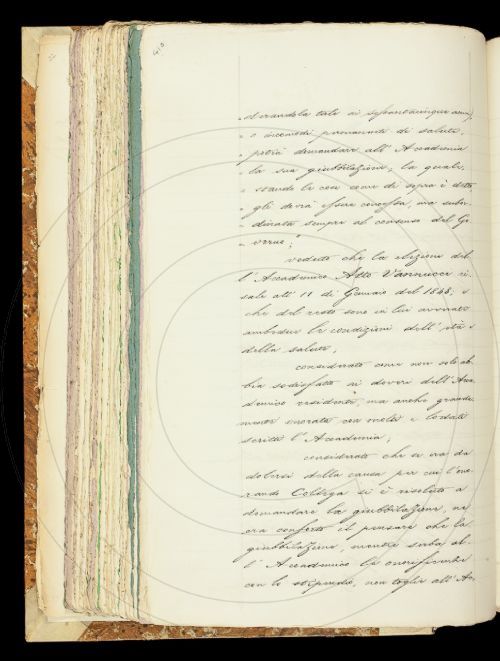 " durandola tale ai sessantacinque anni,
" o incomodi permanenti di salute,
" potrà domandare all'Accademia
" la sua giubbilazione; la quale,
" stando le cose come di sopra è detto
" gli dovrà essere concessa, ma subor-
" dinata sempre al consenso del Go-
" verno;"
veduto che la elezione del-
l'Accademico Atto Vannucci ri-
sale all' 11 di Gennaio del 1848, e
che del resto sono in lui avverate
ambedue le condizioni dell'età e
della salute;
considerato come non solo ab-
bia sodisfatto ai doveri dell'Acca-
demico residente, ma anche grande-
mente onorata con molti e lodati
scritti l'Accademia;
considerato che se era da
dolersi della causa per cui l'ono-
rando Collega si è risoluto a
domandare la giubbilazione, ne
era conforto il pensare che la
giubbilazione, mentre serba al-
l'Accademico le onorificenze
con lo stipendio, non toglie all'Ac-